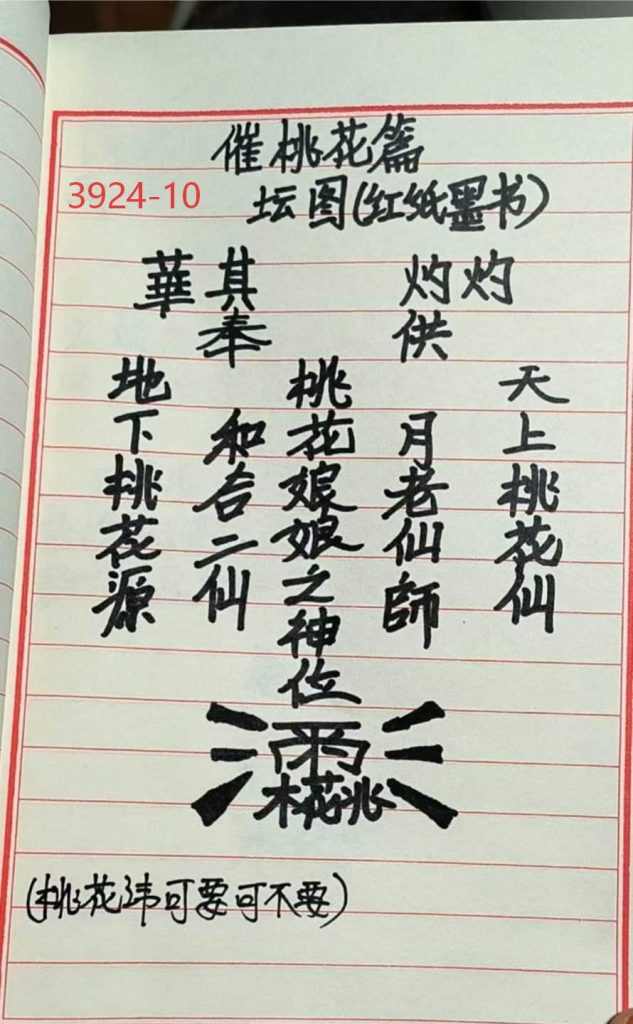 催桃花篇
3924-10
坛图(红纸墨书)
灼灼其華
供奉
天上桃花仙
月老仙師
桃花娘娘之神位
和合二仙
地下桃花源
(桃花讳可要可不要)